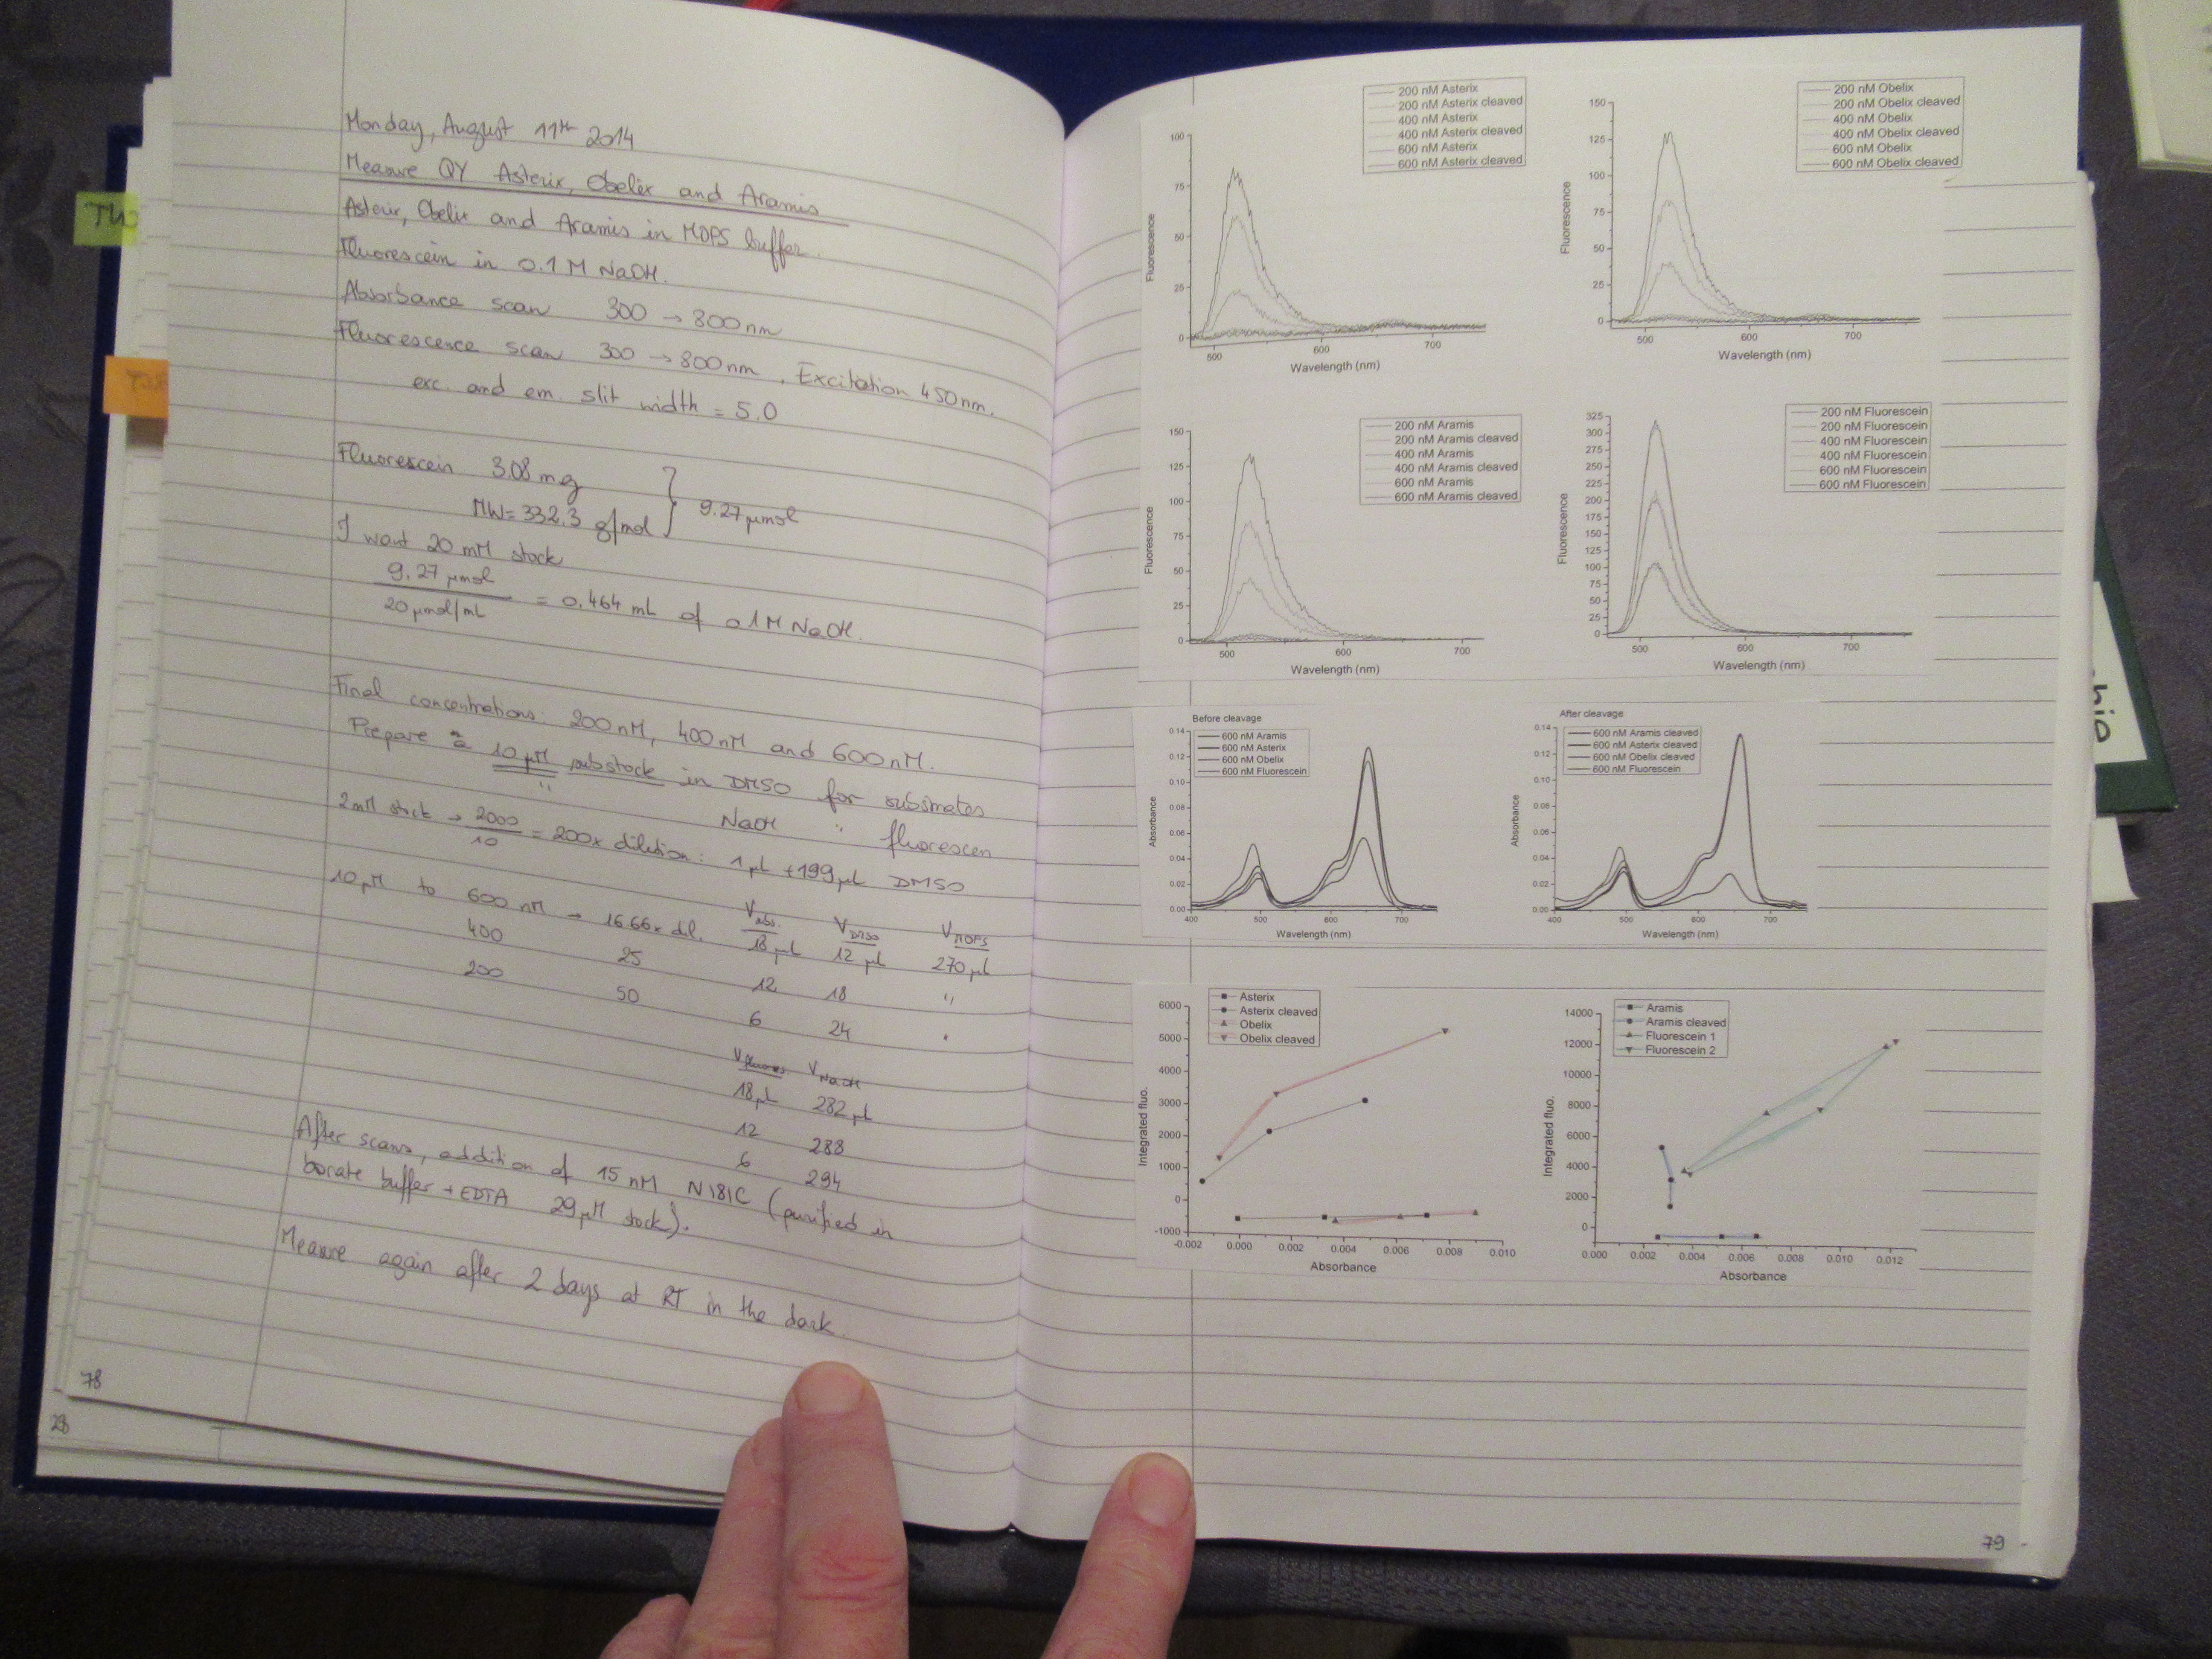 Monday, August 11th 2014
Measure QY Asterix, Obelix and Aramis
Asterix, Obelix and Aramis in MOPS buffer.
Fluorescein in 0.1 M NaOH.
Absorbance scan 300 → 800 nm
Fluorescence scan 300 → 800 nm. Excitation 450 nm.
exc. and em. slit width = 5.0
Fluorescein 3.08 mg
MW = 332.3 g/mol } 9.27 µmol
I want 20 mM stock
9.27 µmol
20 µmol/mL = 0.464 mL of 0.1M NaOH.
Final concentrations: 200 nM, 400 nM and 600 nM.
Prepare a 10 µM substock in DMSO for substrates
" NaOH " fluorescein
2 mM stock → 2000
10 = 200x dilution: 1 µL + 199 µL DMSO
V DMSO V MOPS
10 µM to 600 nM → 16.66x dil. 18 µL 12 µL 270 µL
400 25 12 18 "
200 50 6 24 "
V fluores V NaOH
18 µL 282 µL
12 288
6 294
After scans, addition of 15 nM N181C (purified in
borate buffer + EDTA 29 µM stock).
Measure again after 2 days at RT in the dark.
78
28
200 nM Asterix
200 nM Asterix cleaved
400 nM Asterix
400 nM Asterix cleaved
600 nM Asterix
600 nM Asterix cleaved
100
75
50
25
0
Fluorescence
500 600 700
Wavelength (nm)
200 nM Obelix
200 nM Obelix cleaved
400 nM Obelix
400 nM Obelix cleaved
600 nM Obelix
600 nM Obelix cleaved
150
125
100
75
50
25
0
Fluorescence
500 600 700
Wavelength (nm)
200 nM Aramis
200 nM Aramis cleaved
400 nM Aramis
400 nM Aramis cleaved
600 nM Aramis
600 nM Aramis cleaved
150
125
100
75
50
25
0
Fluorescence
500 600 700
Wavelength (nm)
200 nM Fluorescein
200 nM Fluorescein
400 nM Fluorescein
400 nM Fluorescein
600 nM Fluorescein
600 nM Fluorescein
325
300
275
250
225
200
175
150
125
100
75
50
25
0
Fluorescence
500 600 700
Wavelength (nm)
Before cleavage
600 nM Aramis
600 nM Asterix
600 nM Obelix
600 nM Fluorescein
0.14
0.12
0.10
0.08
0.06
0.04
0.02
0.00
Absorbance
400 500 600 700
Wavelength (nm)
After cleavage
600 nM Aramis cleaved
600 nM Asterix cleaved
600 nM Obelix cleaved
600 nM Fluorescein
0.14
0.12
0.10
0.08
0.06
0.04
0.02
0.00
Absorbance
400 500 600 700
Wavelength (nm)
Asterix
Asterix cleaved
Obelix
Obelix cleaved
6000
5000
4000
3000
2000
1000
0
-1000
Integrated fluo.
-0.002 0.000 0.002 0.004 0.006 0.008 0.010
Absorbance
Aramis
Aramis cleaved
Fluorescein 1
Fluorescein 2
14000
12000
10000
8000
6000
4000
2000
0
Integrated fluo.
0.000 0.002 0.004 0.006 0.008 0.010 0.012
Absorbance
79